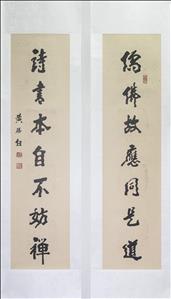 儒佛故應同是道
詩書本自不妨禪